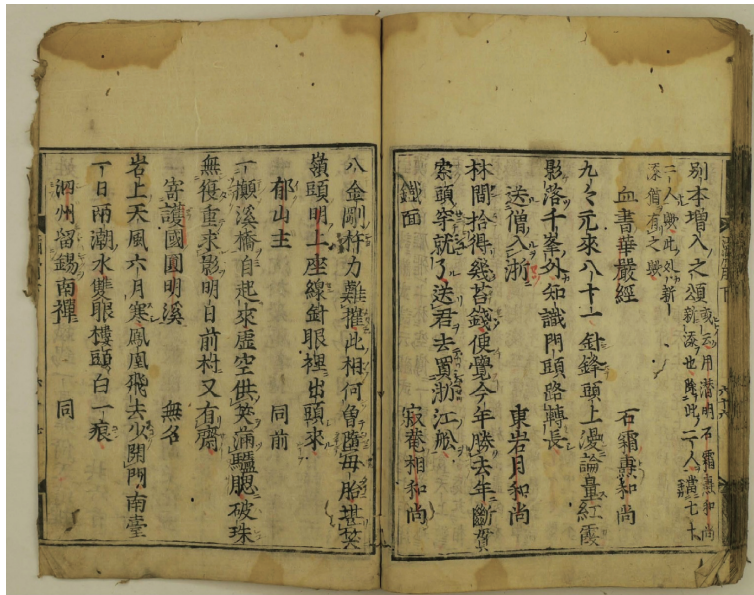 別本增入之頌 或云用潛明石霜熏和尚
新添也除此二人共七十
二人歟此外新
添猶有之歟
血書華嚴經 石霜熏和尚
九九元來八十一針鋒頭上漫論量紅霞
影落千峯外知識門頭路轉長
送僧入浙 東岩月和尚
林間拾得幾苔錢便覺今年勝去年斷貫
索頭穿就了送君去買浙江船
鐵面 寂菴相和尚
八金剛杵力難摧此相何曾墮母胎堪笑
嶺頭明上座線針眼裡出頭來
郁山主 同前
一攧溪橋自起來虛空供笑滿驢腮破珠
無復重求影明白前村又有齋
寄護國圓明溪 無名
岩上天風六月寒鳳凰飛去少開門南臺
一日兩潮水雙眼樓頭白一痕
泗州留錫南禪 同